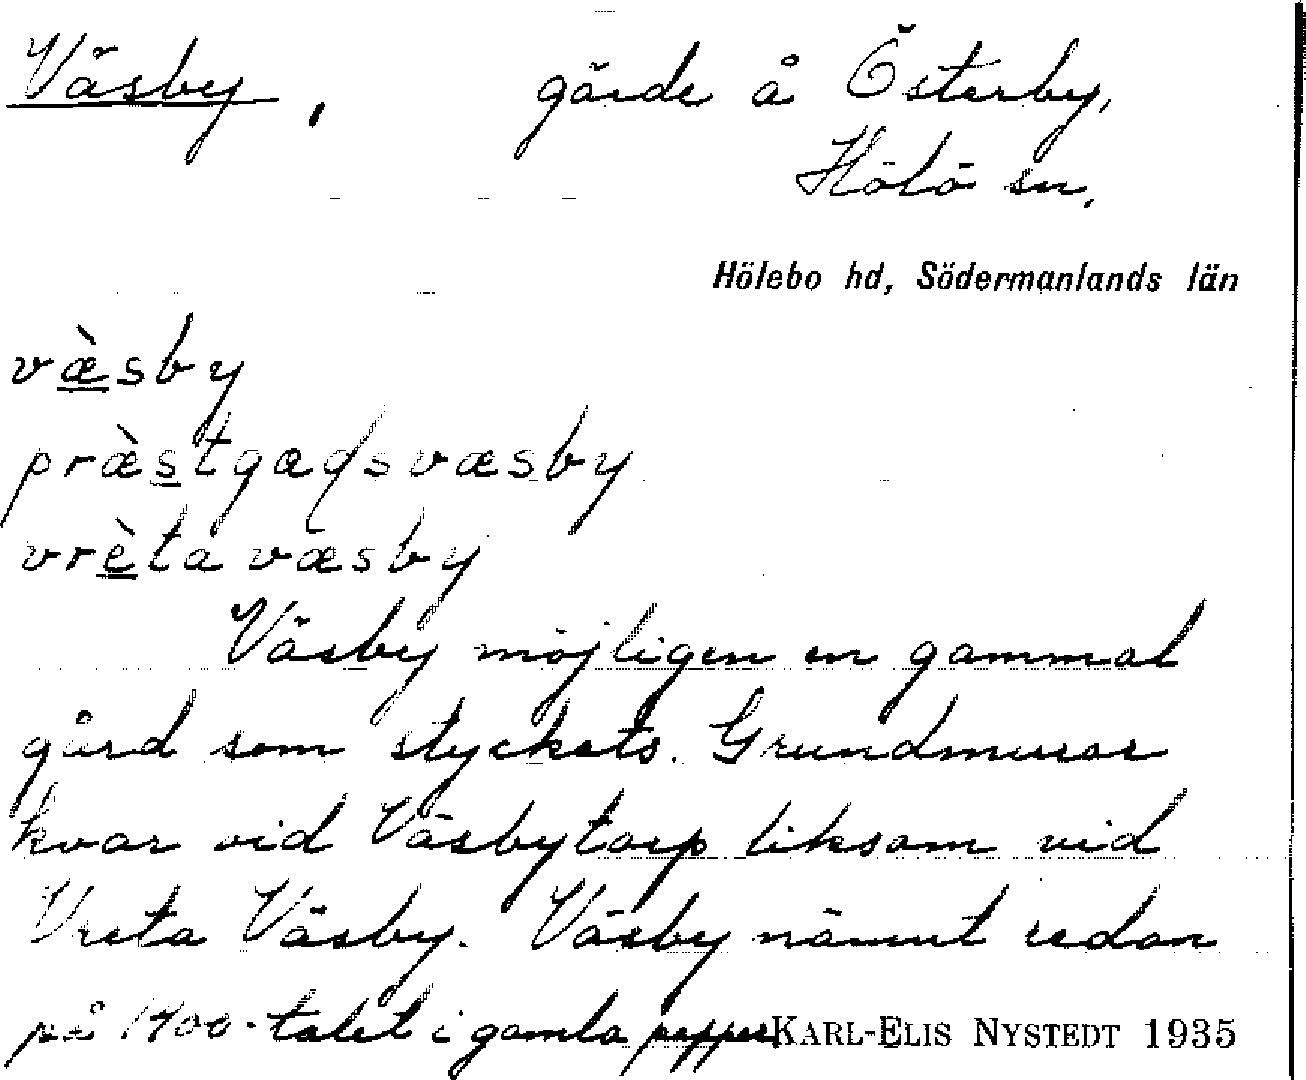 Väsby, gärde å Österby,
Hölö sn.
Hölebo hd, Södermanlands län
væ̀sby
præ̀stgæɖsvæsby
vrèta væsby
Väsby möjligen en gammal
gård som styckats. Grundmurar
kvar vid Väsbytorp liksom vid
Vreta Väsby. Väsby nämnt redan
på 1400-talet i gamla papper
KARL-ELIS NYSTEDT 1935